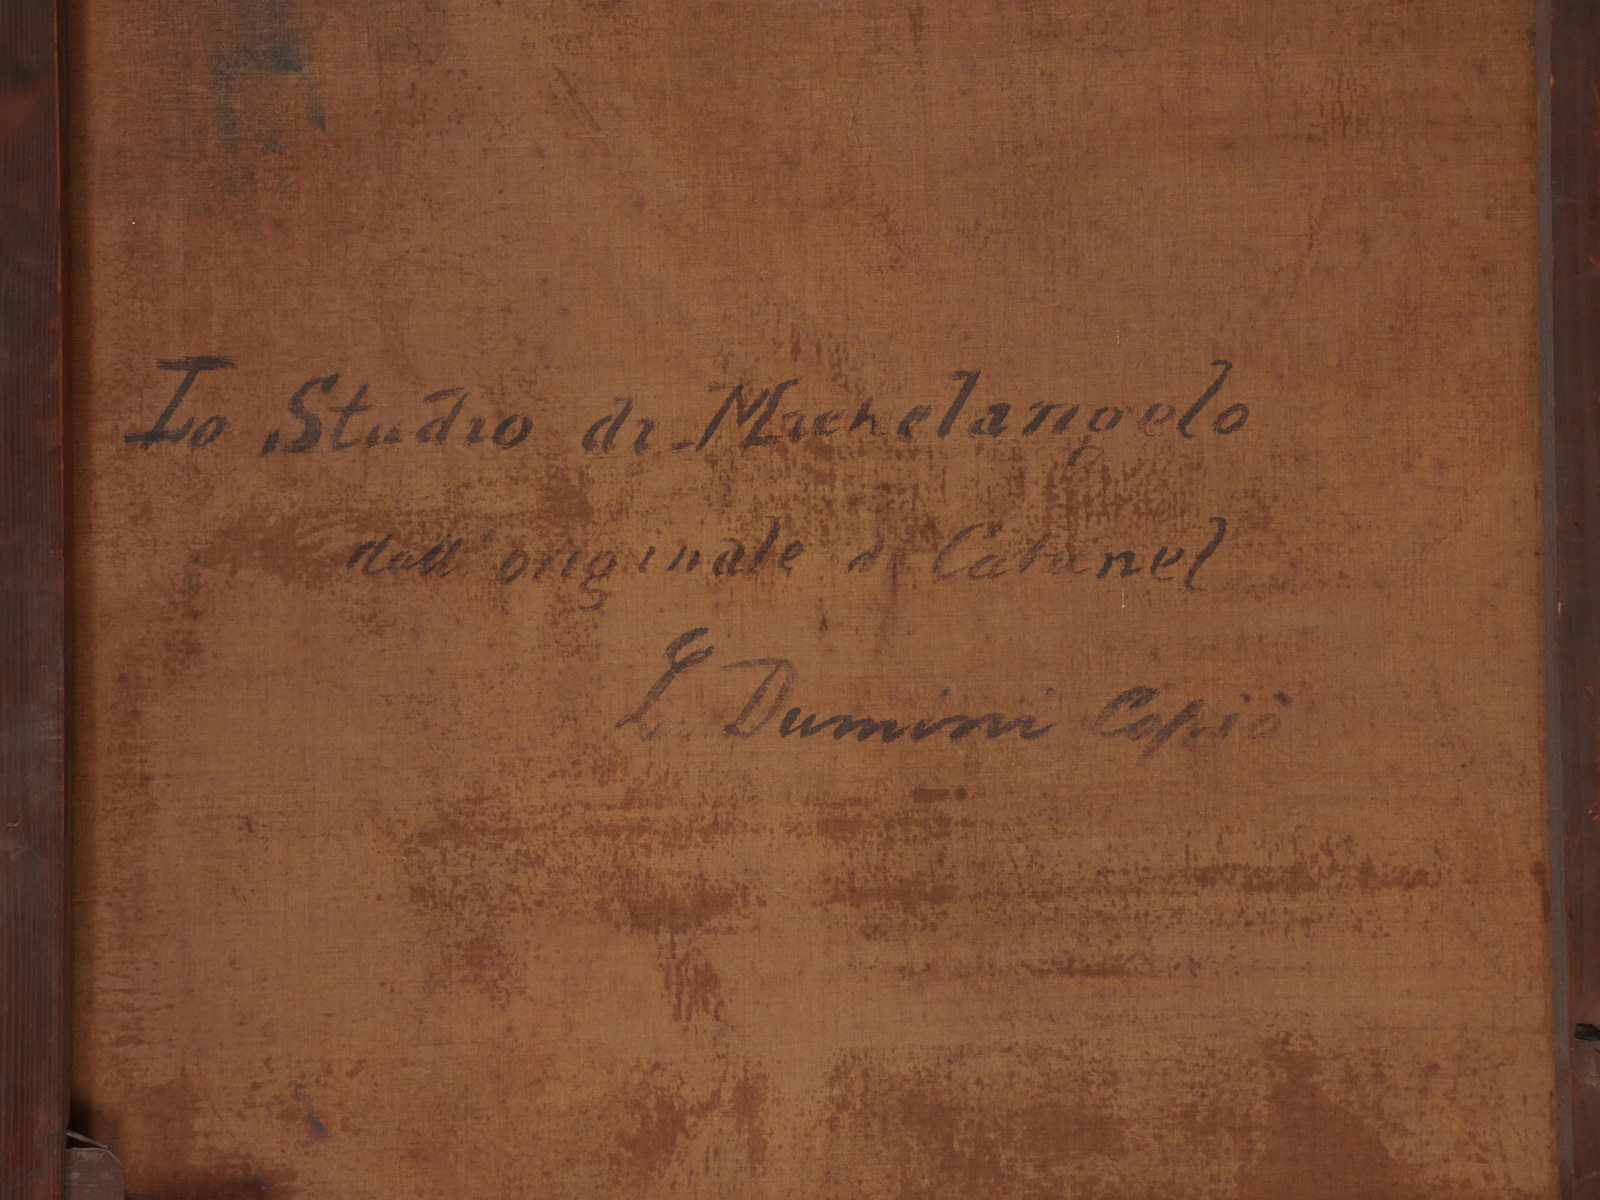 Lo Studio di Michelangelo
dall'originale di Catanel
L. Dumini Copiò